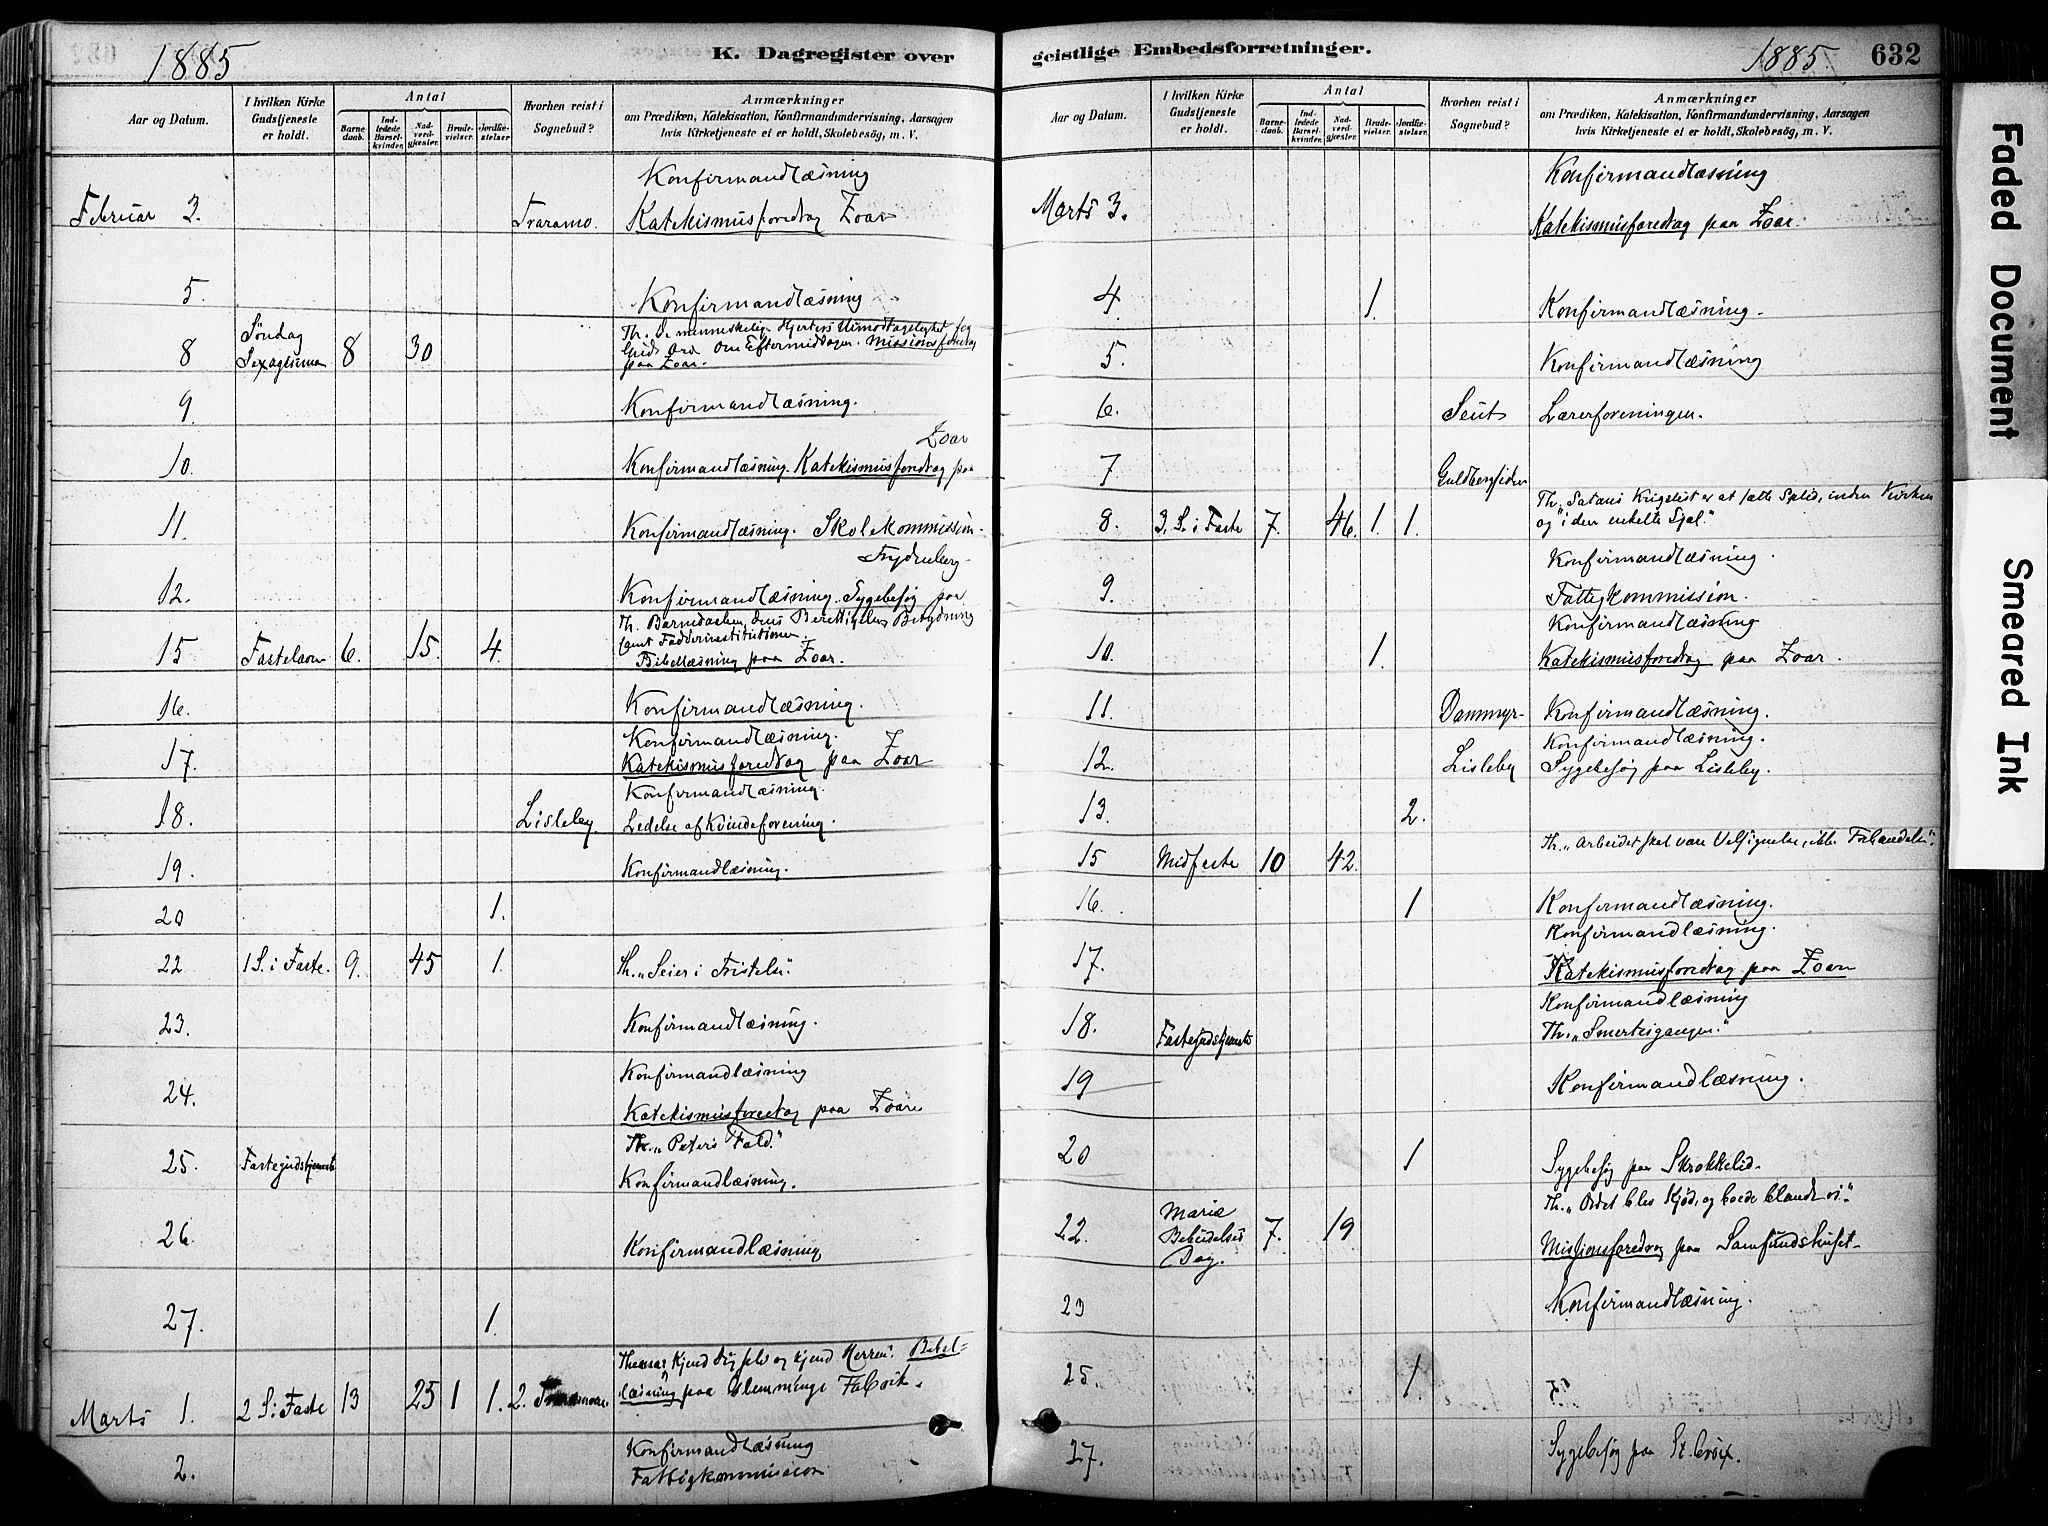 1885
K. Dagregister over
Aar og Datum.
I hvilken Kirke Gudstjeneste er holdt.
Antal
Barnedaab.
Indledede Barselkvinder.
Nadverdgjæster.
Brudevielser.
Jordfæstelser
Hvorhen reist i Sognebud?
Anmærkninger
om Prædiken, Katekisation, Konfirmandundervisning, Aarsagen
hvis Kirketjeneste ei er holdt, Skolebesög, m. V.
Konfirmandlæsning
Februar 3. Traramo. Katekismusforedrag Zoar
5. Konfirmandlæsning
8 Søndag Sexagesima 8 30 Th. D. menneskelige Hjertes Uimodtagelighed for
Guds Ord. Om Eftermiddagen. Missionsforedrag
paa Zoar.
9 Konfirmandlæsning.
Zoar
10. Konfirmandlæsning. Katekismusforedrag paa
11. Konfirmandlæsning. Skolekommission.
Frydenberg.
12. Konfirmandlæsning. Sygebesøg paa
Th. Barnedaaben, dens Berettigelse, Betydning
samt Fadderinstitutionen.
15 Fastelavn 6. 15. 4. Bibellæsning paa Zoar.
16. Konfirmandlæsning.
Konfirmandlæsning.
17. Katekismusforedrag paa Zoar
Konfirmandlæsning.
18. Lisleby. Ledelse af Kvindeforening.
19. Konfirmandlæsning.
20 1.
22 1 S. i Faste. 9. 45 1. Th. „Seier i Fristelse“.
23. Konfirmandlæsning.
Konfirmandlæsning
24. Katekismusforedrag paa Zoar
Th. „Peters Fald.“
25. Fastegudstjeneste Konfirmandlæsning.
26. Konfirmandlæsning
27. 1.
Thema: Kjend dig selv og kjend Herren. Bibel-
Marts 1. 2 S. i Faste 13 25 1 1. 2. læsning paa Glemminge Fabrik.
Konfirmandlæsning
2. Fattigkommission
geistlige Embedsforretninger.
1885.
632
Aar og Datum.
I hvilken Kirke Gudstjeneste er holdt.
Antal
Barnedaab.
Indledede Barselkvinder.
Nadverdgjæster.
Brudevielser.
Jordfæstelser.
Hvorhen reist i Sognebud?
Anmærkninger
om Prædiken, Katekisation, Konfirmandundervisning, Aarsagen
hvis Kirketjeneste ei er holdt, Skolebesög, m. V.
Konfirmandlæsning
Marts 3. Katekismusforedrag paa Zoar.
4 1. Konfirmandlæsning.
5. Konfirmandlæsning
6. Seut Lærerforeningen.
7. Guldbergsiden
Th. „Satans Krigslist er at sætte Splid, inden Kirken
8. 3. S. i Faste 7. 46. 1 1. og i den enkelte Sjæl.“
Konfirmandlæsning.
9. Fattigkommission.
Konfirmandlæsning
10. 1. Katekismusforedrag paa Zoar.
11. Dammyr- Konfirmandlæsning.
Konfirmandlæsning.
12. Lisleby Sygebesøg paa Lisleby.
13. 2.
Th. „Arbeidet skal være Velsignelse, ikke Forbandelse“.
15 Midfaste 10 42.
16. 1 Konfirmandlæsning.
Konfirmandlæsning.
17. Katekismusforedrag paa Zoar
Konfirmandlæsning
18. Fastegudstjeneste Th. „Smertesgangen.“
19 Konfirmandlæsning.
20 1 Sygebesøg paa Skrokkelid.
Th. „Ordet blev Kjød, og boede blandt os“.
22. Mariæ Bebudelses Dag. 7. 19 Missionsforedrag paa Samfundshuset.
23 Konfirmandlæsning.
25. 1
27. Sygebesøg paa St. Croix.
Faded Document
Smeared Ink